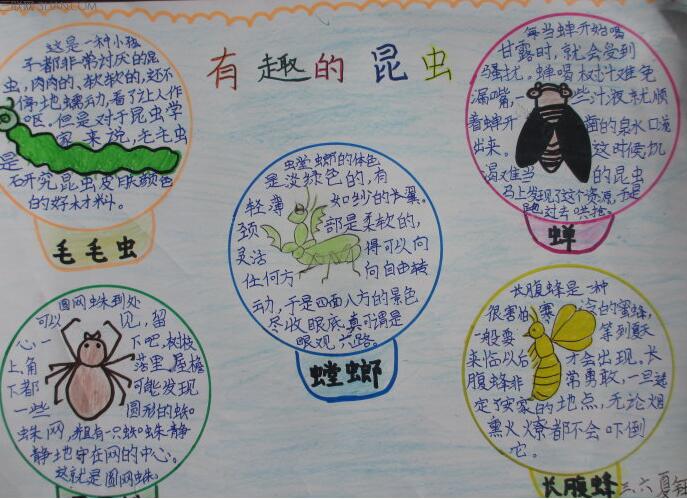 有趣的昆虫
这是一种小孩
子都非常讨厌的昆
虫,肉肉的、软软的,还不
停地蠕动,看了让人作
呕。但是对于昆虫学
家来说,毛毛虫
是
研究昆虫皮肤颜色
的好材料。
毛毛虫
每当蝉开始喝
甘露时,就会受到
骚扰。蝉喝树汁难免
漏嘴,一些汁液就顺
着蝉开凿的泉水口流
出来。这时候饥
渴难当的昆虫
马上发现了这个资源,于是
跑过去哄抢。
蝉
螳螂的体色
是淡绿色的,有
轻薄如纱的长翼。
颈部是柔软的,
灵活得可以向
任何方向自由转
动,于是四面八方的景色
尽收眼底,真可谓是
眼观六路。
螳螂
圆网蛛到处
可以见,留
心一下吧,树枝
上角落里,屋檐
下都可能发现
一些圆形的蛛
蛛网,并且有一只蜘蛛静
静地守在网的中心。
这就是圆网蛛。
长腹蜂是一种
很害怕寒冷的蜜蜂,
一般要等到夏天
来临以后才会出现。长
腹蜂非常勇敢,一旦选
定了安家的地点,无论烟
熏火燎都不会吓倒
它。
长腹蜂
三、六